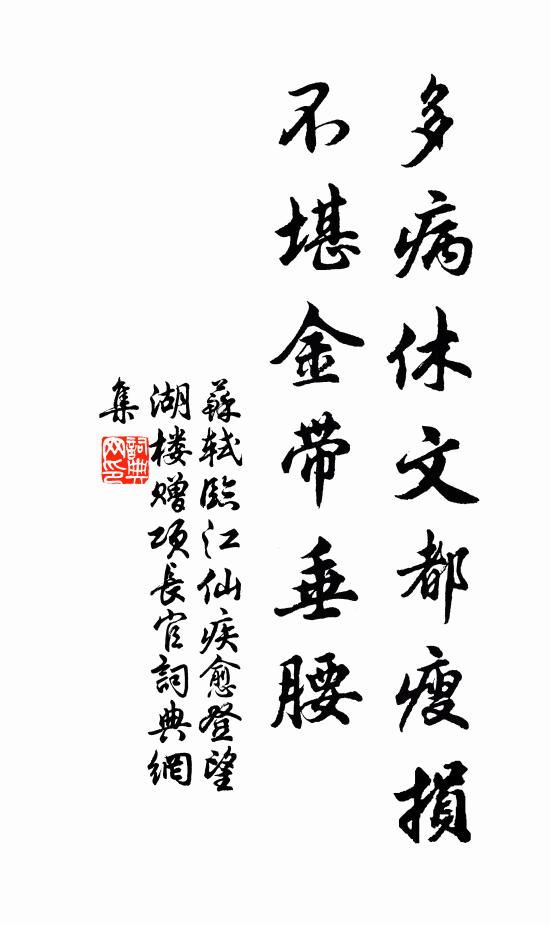 多病休文都瘦損
不堪金带垂腰
蘇軾臨江仙疾愈登望
湖楼赠项長官詞典網
集
詞典文印